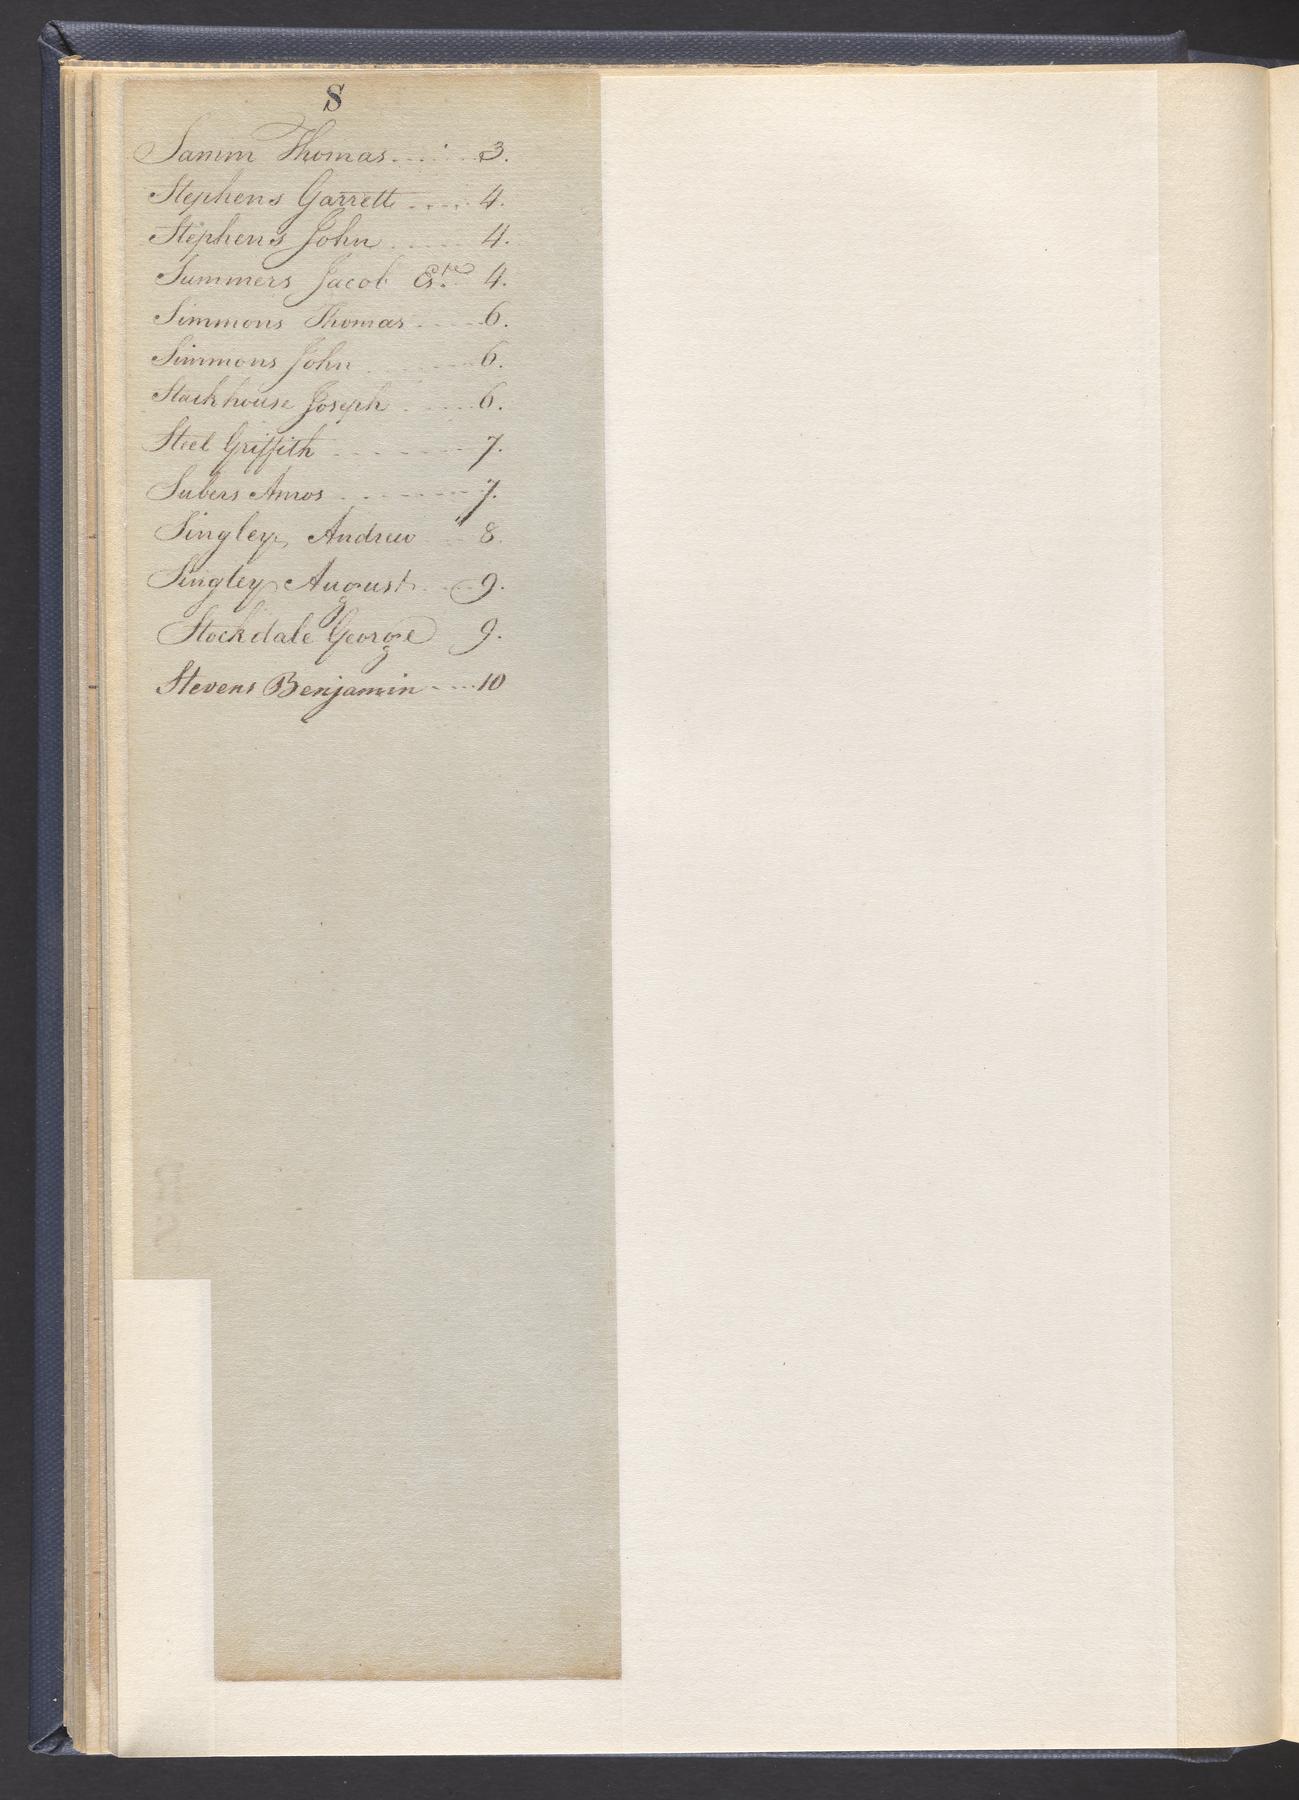 S
Samm Thomas ..... 3.
Stephens Garrett ..... 4.
Stephens John ..... 4.
Summers Jacob Es.te 4.
Simmons Thomas ..... 6.
Simmons John ..... 6.
Stackhouse Joseph ..... 6.
Steel Griffith ..... 7.
Subers Amos ..... 7.
Singley, Andrew ... 8.
Singley August ... 9.
Stockdale George 9.
Stevens Benjamin .... 10